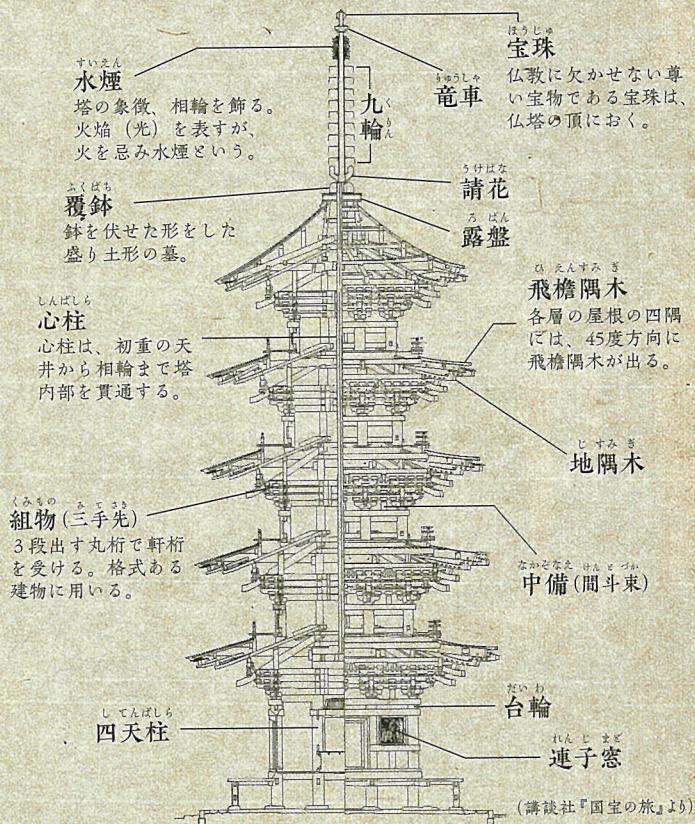 すいえん
水煙
塔の象徴、相輪を飾る。
火焔（光）を表すが、
火を忌み水煙という。
ふくばち
覆鉢
鉢を伏せた形をした
盛り土形の墓。
しんばしら
心柱
心柱は、初重の天
井から相輪まで塔
内部を貫通する。
くみもの みてさき
組物(三手先)
3段出す丸桁で軒桁
を受ける。格式ある
建物に用いる。
してんばしら
四天柱
くりん
九輪
ほうじゅ
宝珠
仏教に欠かせない尊
い宝物である宝珠は、
仏塔の頂におく。
りゅうしゃ
竜車
うけばな
請花
ろばん
露盤
ひえんすみぎ
飛檐隅木
各層の屋根の四隅
には、45度方向に
飛檐隅木が出る。
じすみぎ
地隅木
なかぞなえ けんとづか
中備(間斗束)
だいわ
台輪
れんじまど
連子窓
(講談社『国宝の旅』より)